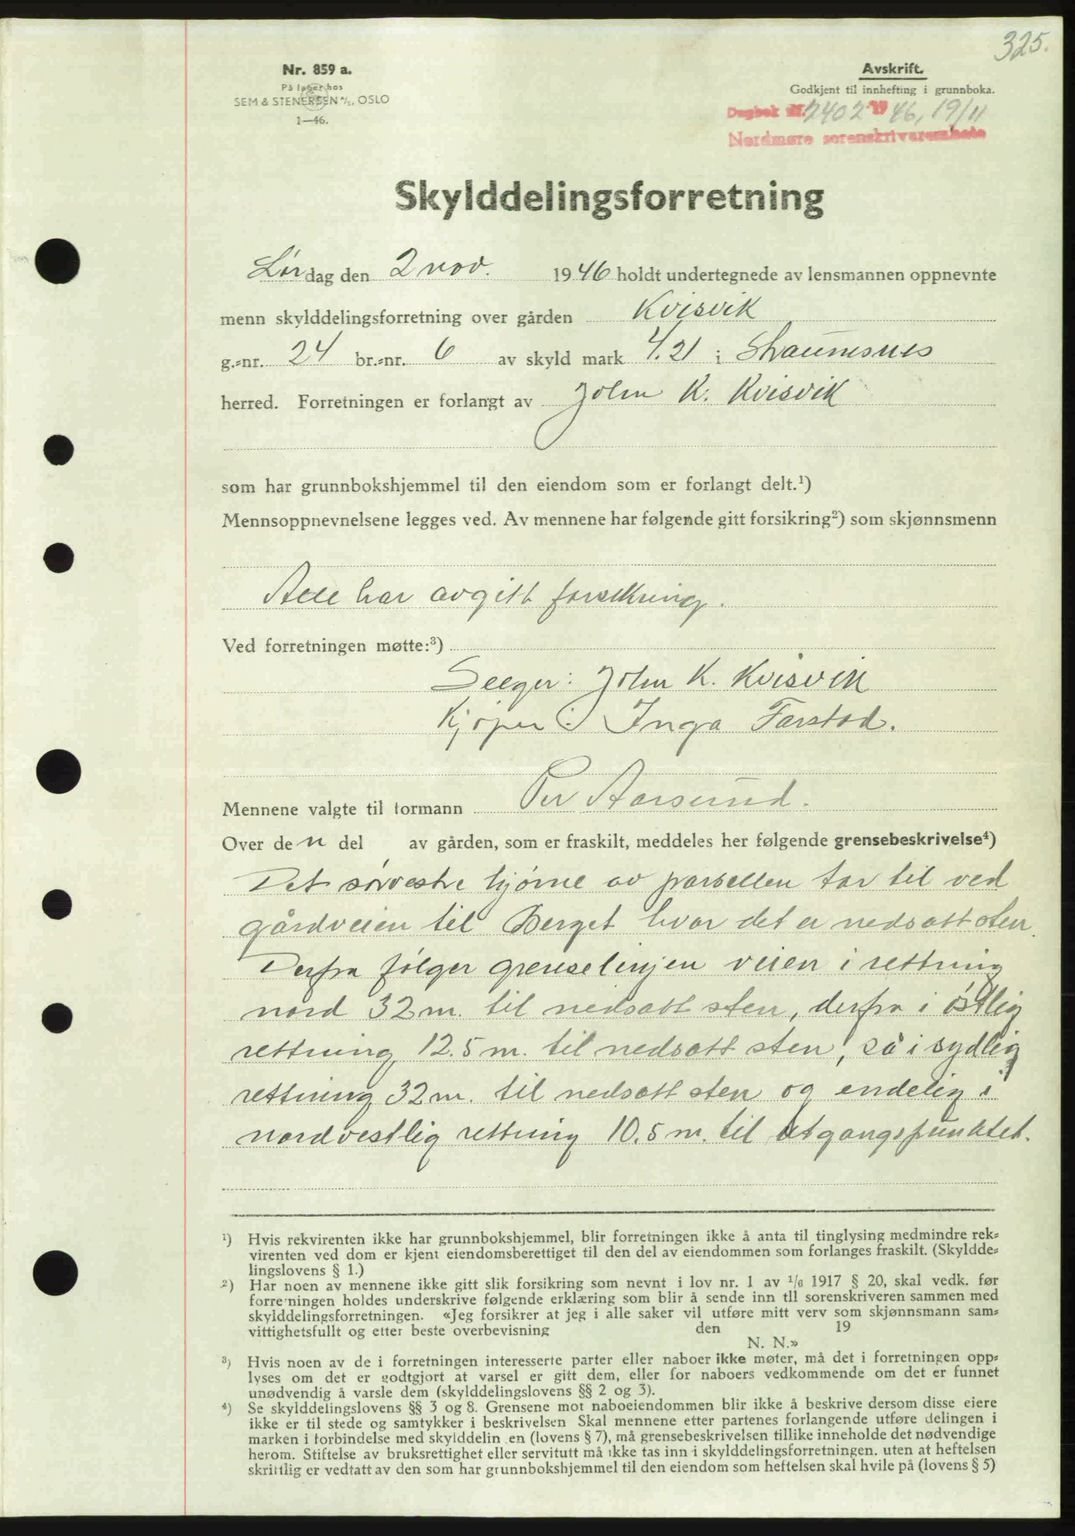 325.
Nr. 859 a.
På lager hos
SEM & STENERSEN A/S, OSLO
1—46.
Avskrift.
Godkjent til innhefting i grunnboka.
Dagbok nr. 2402 1946, 19/11
Nordmøre sorenskriverembete
Skylddelingsforretning
Lørdag den 2 nov. 1946 holdt undertegnede av lensmannen oppnevnte
menn skylddelingsforretning over gården Kvisvik
g.-nr. 24 br.-nr. 6 av skyld mark 4.21 i Straumsnes
herred. Forretningen er forlangt av John K. Kvisvik
som har grunnbokshjemmel til den eiendom som er forlangt delt.¹)
Mennsoppnevnelsene legges ved. Av mennene har følgende gitt forsikring²) som skjønnsmenn
Alle har avgitt forsikring.
Ved forretningen møtte:³)
Selger: John K. Kvisvik
Kjøper: Inga Farstad.
Mennene valgte til formann Per Aarsund.
Over den del av gården, som er fraskilt, meddeles her følgende grensebeskrivelse⁴)
Det sørvestre hjørne av parsellen tar til ved
gårdveien til Berget hvor det er nedsatt sten.
Derfra følger grenselinjen veien i rettning
nord 32 m. til nedsatt sten, derfra i østlig
rettning 12.5 m. til nedsatt sten, så i sydlig
rettning 32 m. til nedsatt sten og endelig i
nordvestlig rettning 10.5 m. til utgangspunktet.
¹) Hvis rekvirenten ikke har grunnbokshjemmel, blir forretningen ikke å anta til tinglysing medmindre rek-
virenten ved dom er kjent eiendomsberettiget til den del av eiendommen som forlanges fraskilt. (Skyldde-
lingslovens § 1.)
²) Har noen av mennene ikke gitt slik forsikring som nevnt i lov nr. 1 av 1/6 1917 § 20, skal vedk. før
forretningen holdes underskrive følgende erklæring som blir å sende inn til sorenskriveren sammen med
skylddelingsforretningen. «Jeg forsikrer at jeg i alle saker vil utføre mitt verv som skjønnsmann sam-
vittighetsfullt og etter beste overbevisning den 19
N. N.»
³) Hvis noen av de i forretningen interesserte parter eller naboer ikke møter, må det i forretningen opp-
lyses om det er godtgjort at varsel er gitt dem, eller for naboers vedkommende om det er funnet
unødvendig å varsle dem (skylddelingslovens §§ 2 og 3).
⁴) Se skylddelingslovens §§ 3 og 8. Grensene mot naboeiendommen blir ikke å beskrive dersom disse eiere
ikke er til stede og samtykker i beskrivelsen Skal mennene etter partenes forlangende utføre delingen i
marken i forbindelse med skylddelin en (lovens § 7), må grensebeskrivelsen tillike inneholde det nødvendige
herom. Stiftelse av bruksrettighet eller servitutt må ikke tas inn i skylddelingsforretningen. uten at heftelsen
skriftlig er vedtatt av den som har grunnbokshjemmel til den eiendom som heftelsen skal hvile på (lovens § 5)